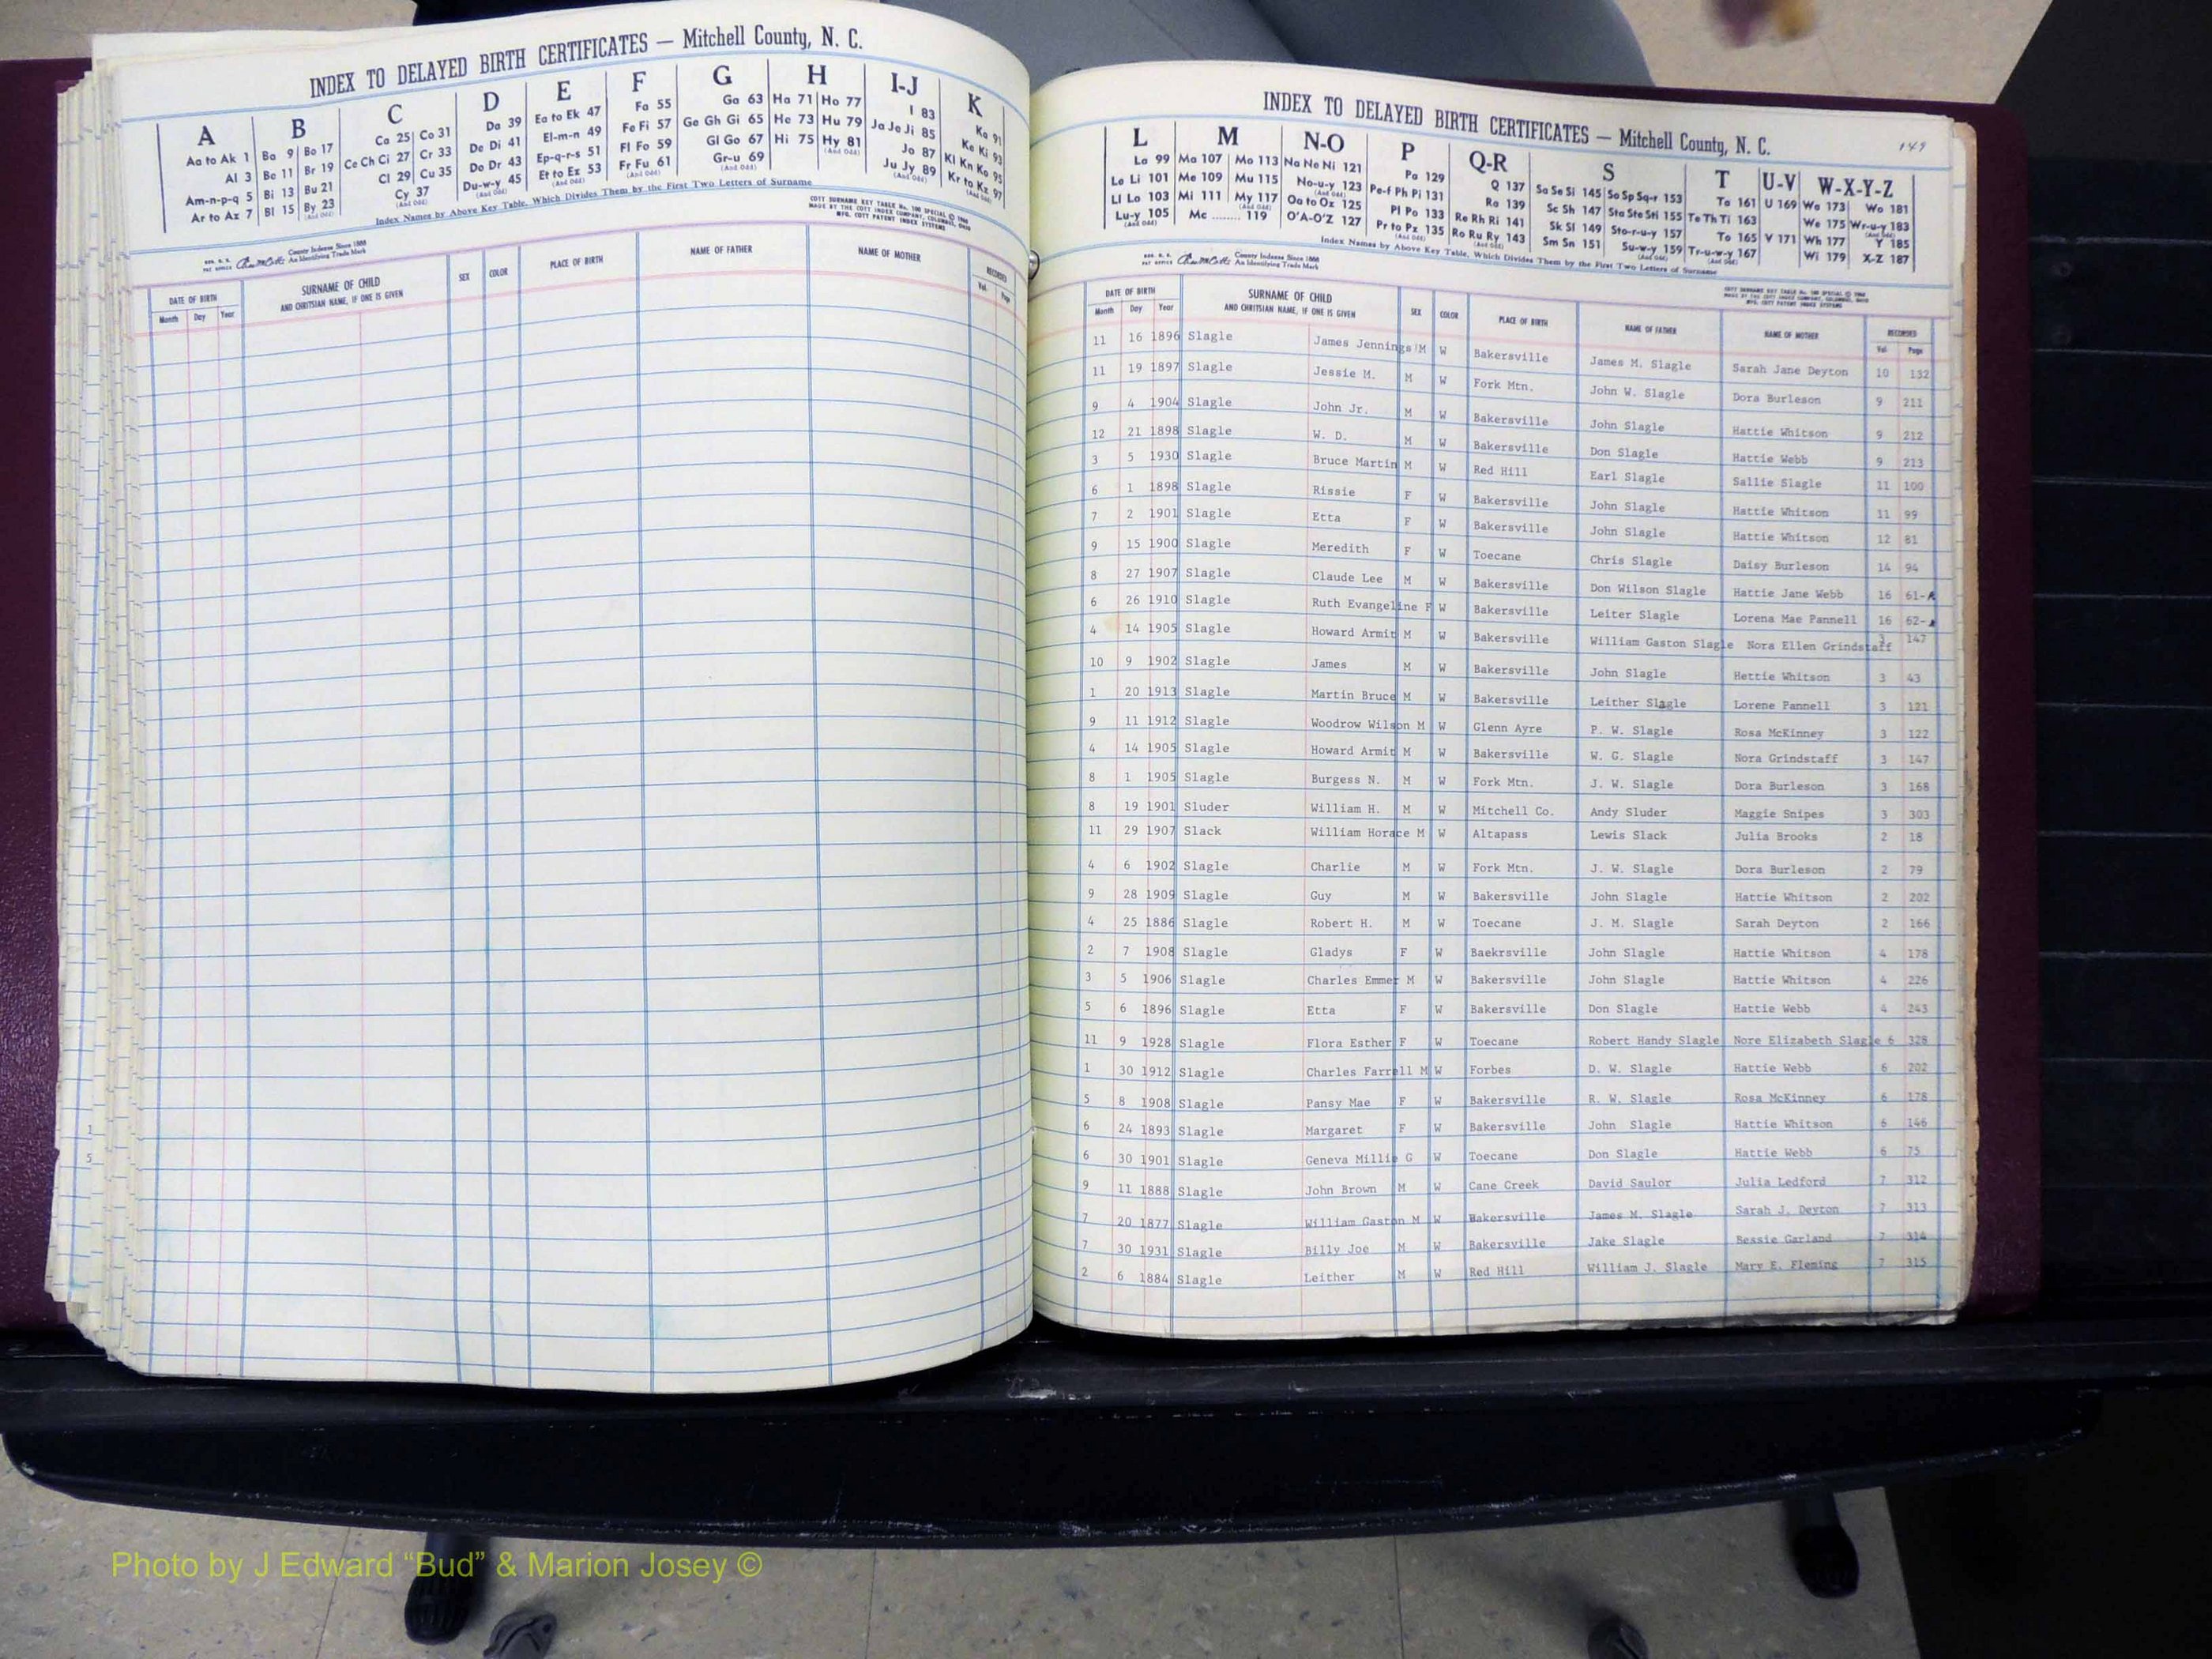 INDEX TO DELAYED BIRTH CERTIFICATES — Mitchell County, N. C.
A B C D E F G H I-J K
Aa to Ak 1 Ba 9 Bo 17 Ca 25 Co 31 Da 39 Ea to Ek 47 Fa 55 Ga 63 Ha 71 Ho 77 I 83 Ka 91
Al 3 Be 11 Br 19 Ce Ch Ci 27 Cr 33 De Di 41 El-m-n 49 Fe Fi 57 Ge Gh Gi 65 He 73 Hu 79 Ja Je Ji 85 Ke Ki 93
Am-n-p-q 5 Bi 13 Bu 21 Cl 29 Cu 35 Do Dr 43 Ep-q-r-s 51 Fl Fo 59 Gl Go 67 Hi 75 Hy 81 Jo 87 Kl Kn Ko 95
Ar to Az 7 Bl 15 By 23 Cy 37 Du-w-y 45 Et to Ez 53 Fr Fu 61 Gr-u 69 Ju Jy 89 Kr to Kz 97
Index Names by Above Key Table, Which Divides Them by the First Two Letters of Surname
COTT SURNAME KEY TABLE No. 100 SPECIAL © 1966
MADE BY THE COTT INDEX COMPANY, COLUMBUS, OHIO
MFG. COTT PATENT INDEX SYSTEMS
County Indexes Since 1888
An Identifying Trade Mark
DATE OF BIRTH SURNAME OF CHILD SEX COLOR PLACE OF BIRTH NAME OF FATHER NAME OF MOTHER RECORDED
Month Day Year AND CHRITSIAN NAME, IF ONE IS GIVEN Vol. Page
1
5
INDEX TO DELAYED BIRTH CERTIFICATES — Mitchell County, N. C.
149
L M N-O P Q-R S T U-V W-X-Y-Z
La 99 Ma 107 Mo 113 Na Ne Ni 121 Pa 129 Q 137 Sa Se Si 145 So Sp Sq-r 153 Ta 161 U 169 Wa 173 Wo 181
Le Li 101 Me 109 Mu 115 No-u-y 123 Pe-f Ph Pi 131 Ra 139 Sc Sh 147 Sta Ste Sti 155 Te Th Ti 163 We 175 Wr-u-y 183
Ll Lo 103 Mi 111 My 117 Oa to Oz 125 Pl Po 133 Re Rh Ri 141 Sk Sl 149 Sto-r-u-y 157 To 165 V 171 Wh 177 Y 185
Lu-y 105 Mc ........ 119 O'A-O'Z 127 Pr to Pz 135 Ro Ru Ry 143 Sm Sn 151 Su-w-y 159 Tr-u-w-y 167 Wi 179 X-Z 187
Index Names by Above Key Table, Which Divides Them by the First Two Letters of Surname
COTT SURNAME KEY TABLE No. 100 SPECIAL © 1966
MADE BY THE COTT INDEX COMPANY, COLUMBUS, OHIO
MFG. COTT PATENT INDEX SYSTEMS
County Indexes Since 1888
An Identifying Trade Mark
DATE OF BIRTH SURNAME OF CHILD SEX COLOR PLACE OF BIRTH NAME OF FATHER NAME OF MOTHER RECORDED
Month Day Year AND CHRITSIAN NAME, IF ONE IS GIVEN Vol. Page
11 16 1896 Slagle James Jennings M W Bakersville James M. Slagle Sarah Jane Deyton 10 132
11 19 1897 Slagle Jessie M. M W Fork Mtn. John W. Slagle Dora Burleson 9 211
9 4 1904 Slagle John Jr. M W Bakersville John Slagle Hattie Whitson 9 212
12 21 1898 Slagle W. D. M W Bakersville Don Slagle Hattie Webb 9 213
3 5 1930 Slagle Bruce Martin M W Red Hill Earl Slagle Sallie Slagle 11 100
6 1 1898 Slagle Rissie F W Bakersville John Slagle Hattie Whitson 11 99
7 2 1901 Slagle Etta F W Bakersville John Slagle Hattie Whitson 12 81
9 15 1900 Slagle Meredith F W Toecane Chris Slagle Daisy Burleson 14 94
8 27 1907 Slagle Claude Lee M W Bakersville Don Wilson Slagle Hattie Jane Webb 16 61-A
6 26 1910 Slagle Ruth Evangeline F W Bakersville Leiter Slagle Lorena Mae Pannell 16 62-
4 14 1905 Slagle Howard Armit M W Bakersville William Gaston Slagle Nora Ellen Grindstaff 3 147
10 9 1902 Slagle James M W Bakersville John Slagle Hettie Whitson 3 43
1 20 1913 Slagle Martin Bruce M W Bakersville Leither Slagle Lorene Pannell 3 121
9 11 1912 Slagle Woodrow Wilson M W Glenn Ayre P. W. Slagle Rosa McKinney 3 122
4 14 1905 Slagle Howard Armit M W Bakersville W. G. Slagle Nora Grindstaff 3 147
8 1 1905 Slagle Burgess N. M W Fork Mtn. J. W. Slagle Dora Burleson 3 168
8 19 1901 Sluder William H. M W Mitchell Co. Andy Sluder Maggie Snipes 3 303
11 29 1907 Slack William Horace M W Altapass Lewis Slack Julia Brooks 2 18
4 6 1902 Slagle Charlie M W Fork Mtn. J. W. Slagle Dora Burleson 2 79
9 28 1909 Slagle Guy M W Bakersville John Slagle Hattie Whitson 2 202
4 25 1886 Slagle Robert H. M W Toecane J. M. Slagle Sarah Deyton 2 166
2 7 1908 Slagle Gladys F W Baekrsville John Slagle Hattie Whitson 4 178
3 5 1906 Slagle Charles Emmer M W Bakersville John Slagle Hattie Whitson 4 226
5 6 1896 Slagle Etta F W Bakersville Don Slagle Hattie Webb 4 243
11 9 1928 Slagle Flora Esther F W Toecane Robert Handy Slagle Nore Elizabeth Slagle 6 328
1 30 1912 Slagle Charles Farrell M W Forbes D. W. Slagle Hattie Webb 6 202
5 8 1908 Slagle Pansy Mae F W Bakersville R. W. Slagle Rosa McKinney 6 178
6 24 1893 Slagle Margaret F W Bakersville John Slagle Hattie Whitson 6 146
6 30 1901 Slagle Geneva Millie G W Toecane Don Slagle Hattie Webb 6 75
9 11 1888 Slagle John Brown M W Cane Creek David Saulor Julia Ledford 7 312
7 20 1877 Slagle William Gaston M W Bakersville James M. Slagle Sarah J. Deyton 7 313
7 30 1931 Slagle Billy Joe M W Bakersville Jake Slagle Bessie Garland 7 314
2 6 1884 Slagle Leither M W Red Hill William J. Slagle Mary E. Fleming 7 315
Photo by J Edward “Bud” & Marion Josey ©